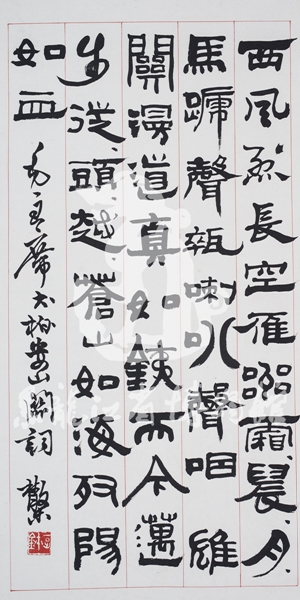 西風烈長空雁叫霜晨月
馬蹄聲碎喇叭聲咽雄
關漫道真如鐵而今邁
步從頭越蒼山如海殘陽
如血
毛主席婁山關詞
黑龍江省博物館